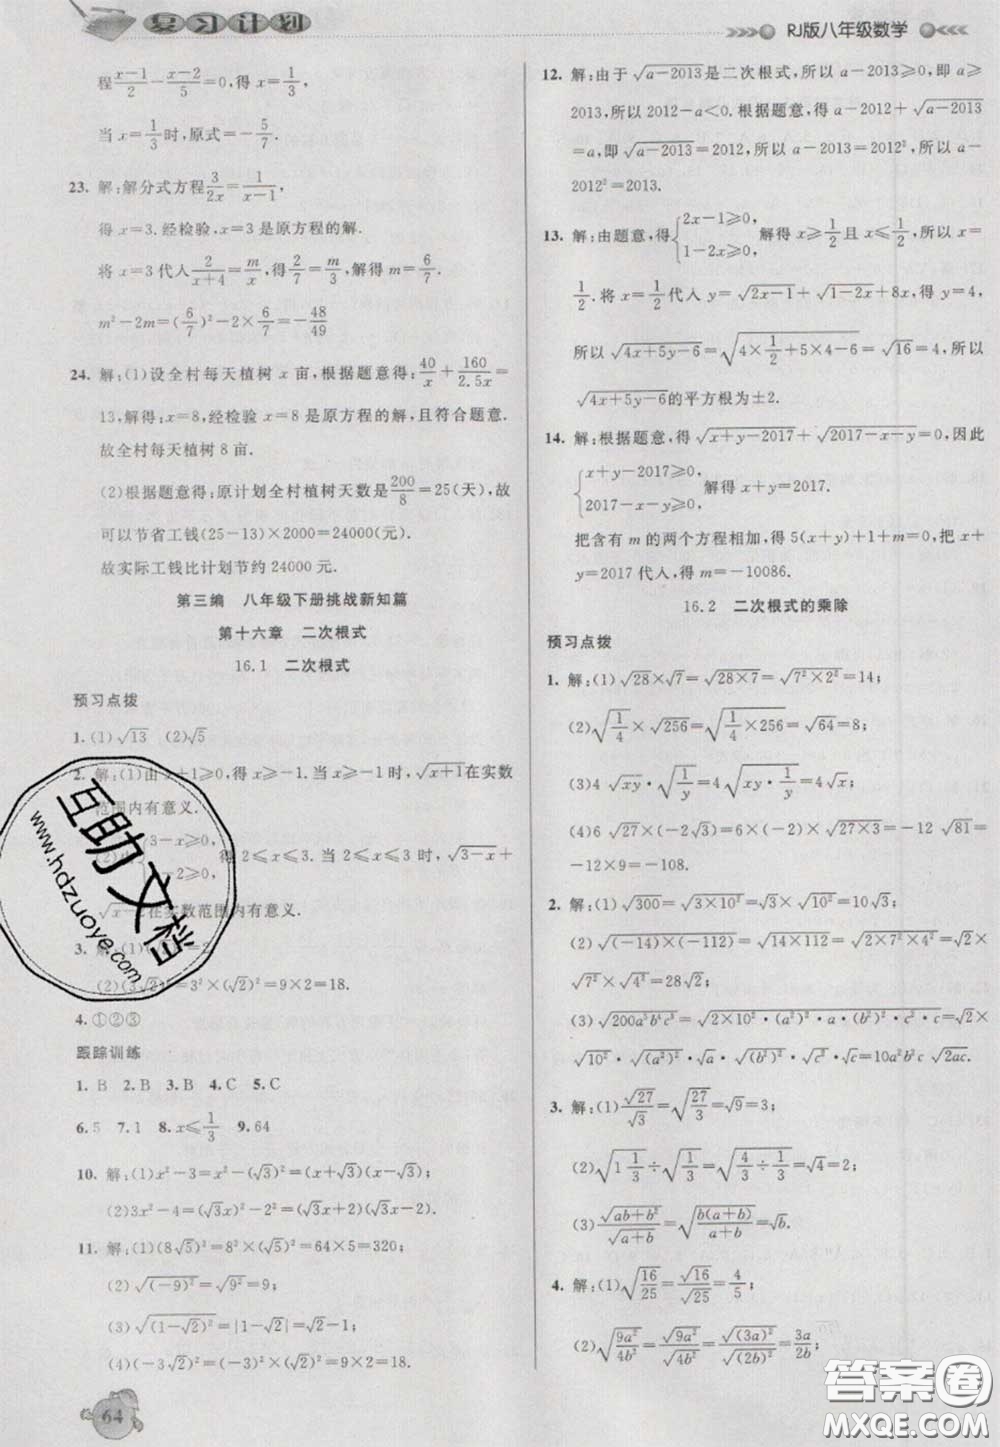 复习计划
RJ版八年级数学
程\frac{x-1}{2}-\frac{x-2}{5}=0,得 x=\frac{1}{3},
当 x=\frac{1}{3}时,原式=-\frac{5}{7}.
23. 解:解分式方程\frac{3}{2x}=\frac{1}{x-1},
得 x=3.经检验,x=3是原方程的解.
将 x=3代人\frac{2}{x+4}=\frac{m}{x},得\frac{2}{7}=\frac{m}{3},解得 m=\frac{6}{7}.
m²-2m=(\frac{6}{7})²-2×\frac{6}{7}=-\frac{48}{49}
24. 解:(1)设全村每天植树 x 亩,根据题意得:\frac{40}{x}+\frac{160}{2.5x}=
13,解得:x=8,经检验 x=8 是原方程的解,且符合题意.
故全村每天植树8亩.
(2)根据题意得:原计划全村植树天数是\frac{200}{8}=25(天),故
可以节省工钱(25-13)×2000=24000(元).
故实际工钱比计划节约 24000元.
第三编 八年级下册挑战新知篇
第十六章 二次根式
16.1 二次根式
预习点拨
1.(1)√13 (2)√5
2. 解:(1)由 x+1≥0,得 x≥-1.当 x≥-1时,√(x+1)在实数
范围内有意义.
3-x≥0,
≥0, 得 2≤x≤3.当2≤x≤3时,√(3-x)+
在实数范围内有意义.
3. 解:(1)
(2)(3√2)²=3²×(√2)²=9×2=18.
4.①②③
跟踪训练
1. B 2. B 3. B 4. C 5. C
6.5 7.1 8. x≤\frac{1}{3} 9.64
10. 解:(1)x²-3=x²-(√3)²=(x+√3)(x-√3);
(2)3x²-4=(√3x)²-2²=(√3x+2)(√3x-2).
11. 解:(1)(8√5)²=8²×(√5)²=64×5=320;
(2)√((-9)²)=√(9²)=9;
(3)√((1-√2)²)=|1-√2|=√2-1;
(4)(-3√2)²=(-3)²×(√2)²=9×2=18.
64
12. 解:由于√(a-2013)是二次根式,所以 a-2013≥0,即 a≥
2013,所以 2012-a<0.根据题意,得 a-2012+√(a-2013)
=a,即 √(a-2013)=2012,所以 a-2013=2012²,所以 a-
2012²=2013.
13. 解:由题意,得{2x-1≥0, 1-2x≥0, 解得 x≥\frac{1}{2}且 x≤\frac{1}{2},所以 x=
\frac{1}{2}.将 x=\frac{1}{2}代人 y=√(2x-1)+√(1-2x)+8x,得 y=4,
所以 √(4x+5y-6)=√(4×\frac{1}{2}+5×4-6)=√16=4,
√(4x+5y-6)的平方根为±2.
14. 解:根据题意,得 √(x+y-2017)+√(2017-x-y)=0,因此
{x+y-2017≥0, 2017-x-y≥0. 解得 x+y=2017.
把含有 m 的两个方程相加,得 5(x+y)+1+m=0,把 x+
y=2017代人,得 m=-10086.
16.2 二次根式的乘除
预习点拨
1. 解:(1)√28×√7=√(28×7)=√(7²×2²)=14;
(2)√\frac{1}{4}×√256=√(\frac{1}{4}×256)=√64=8;
(3)4√(xy)·√\frac{1}{y}=4√(xy·\frac{1}{y})=4√x;
(4)6√27×(-2√3)=6×(-2)×√(27×3)=-12√81=
-12×9=-108.
2. 解:(1)√300=√(3×10²)=√3×√(10²)=10√3;
(2)√((-14)×(-112))=√(14×112)=√(2×7²×4²)=√2×
√(7²)×√(4²)=28√2;
(3)√(200a⁵b⁴c³)=√(2×10²·(a²)²·a·(b²)²·c²·c)=√2×
√(10²)·√((a²)²)·√a·√((b²)²)·√(c²)·√c=10a²b²c√(2ac).
3. 解:(1)\frac{√27}{√3}=√\frac{27}{3}=√9=3;
(2)√(1\frac{1}{3})÷√\frac{1}{3}=√(\frac{4}{3}÷\frac{1}{3})=√4=2;
(3)\frac{√(ab+b²)}{√(a+b)}=√\frac{b(a+b)}{a+b}=√b.
4. 解:(1)√\frac{16}{25}=\frac{√16}{√25}=\frac{4}{5};
(2)√\frac{9a²}{4b²}=\frac{√(9a²)}{√(4b²)}=\frac{√((3a)²)}{√((2b)²)}=\frac{3a}{2b};
互助文档
www.hdzuoye.com
答案圈
MXQE.COM